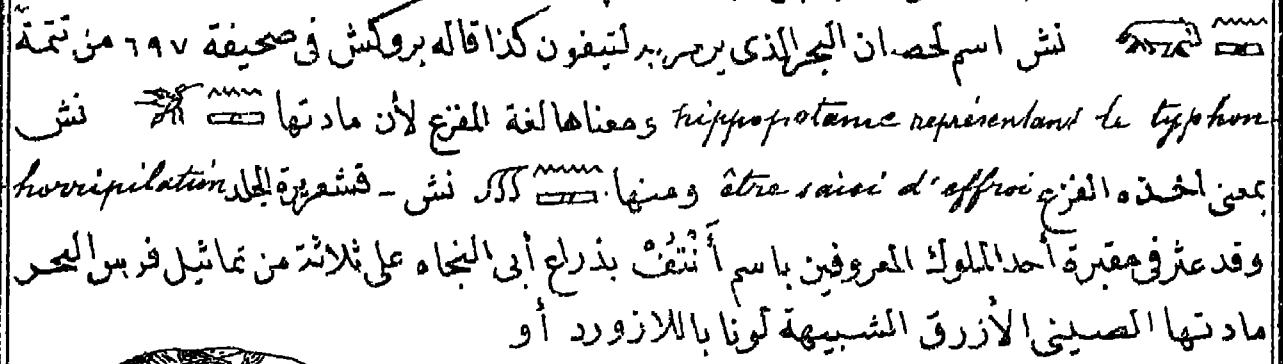 نش اسم لحصان البحر الذى يرمز به لتيفون كذا قاله بروكش فى صحيفة ٦٩٧ من تتمة
hippopotame représentant le typhon ومعناها لغة المفزع لأن مادتها نش
بمعنى أخذه الفزع être saisi d'effroi ومنها نش - قشعريرة الجلد horripilation
وقد عثر فى مقبرة أحد الملوك المعروفين باسم أَنْتُفْ بذراع أبى النجاه على ثلاثة من تماثيل فرس البحر
مادتها الصينى الأزرق الشبيهة لونا باللازورد أو